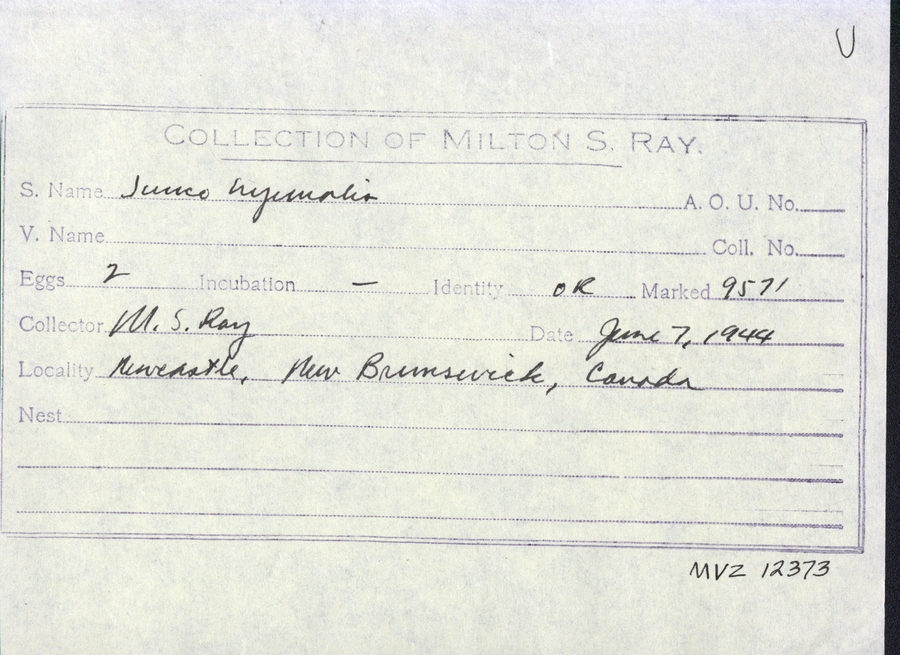 U
COLLECTION OF MILTON S. RAY.
S. Name Junco hyemalis A. O. U. No.
V. Name Coll. No.
Eggs 2 Incubation — Identity OK Marked 9571
Collector M. S. Ray Date June 7, 1944
Locality Newcastle, New Brunswick, Canada
Nest
MVZ 12373